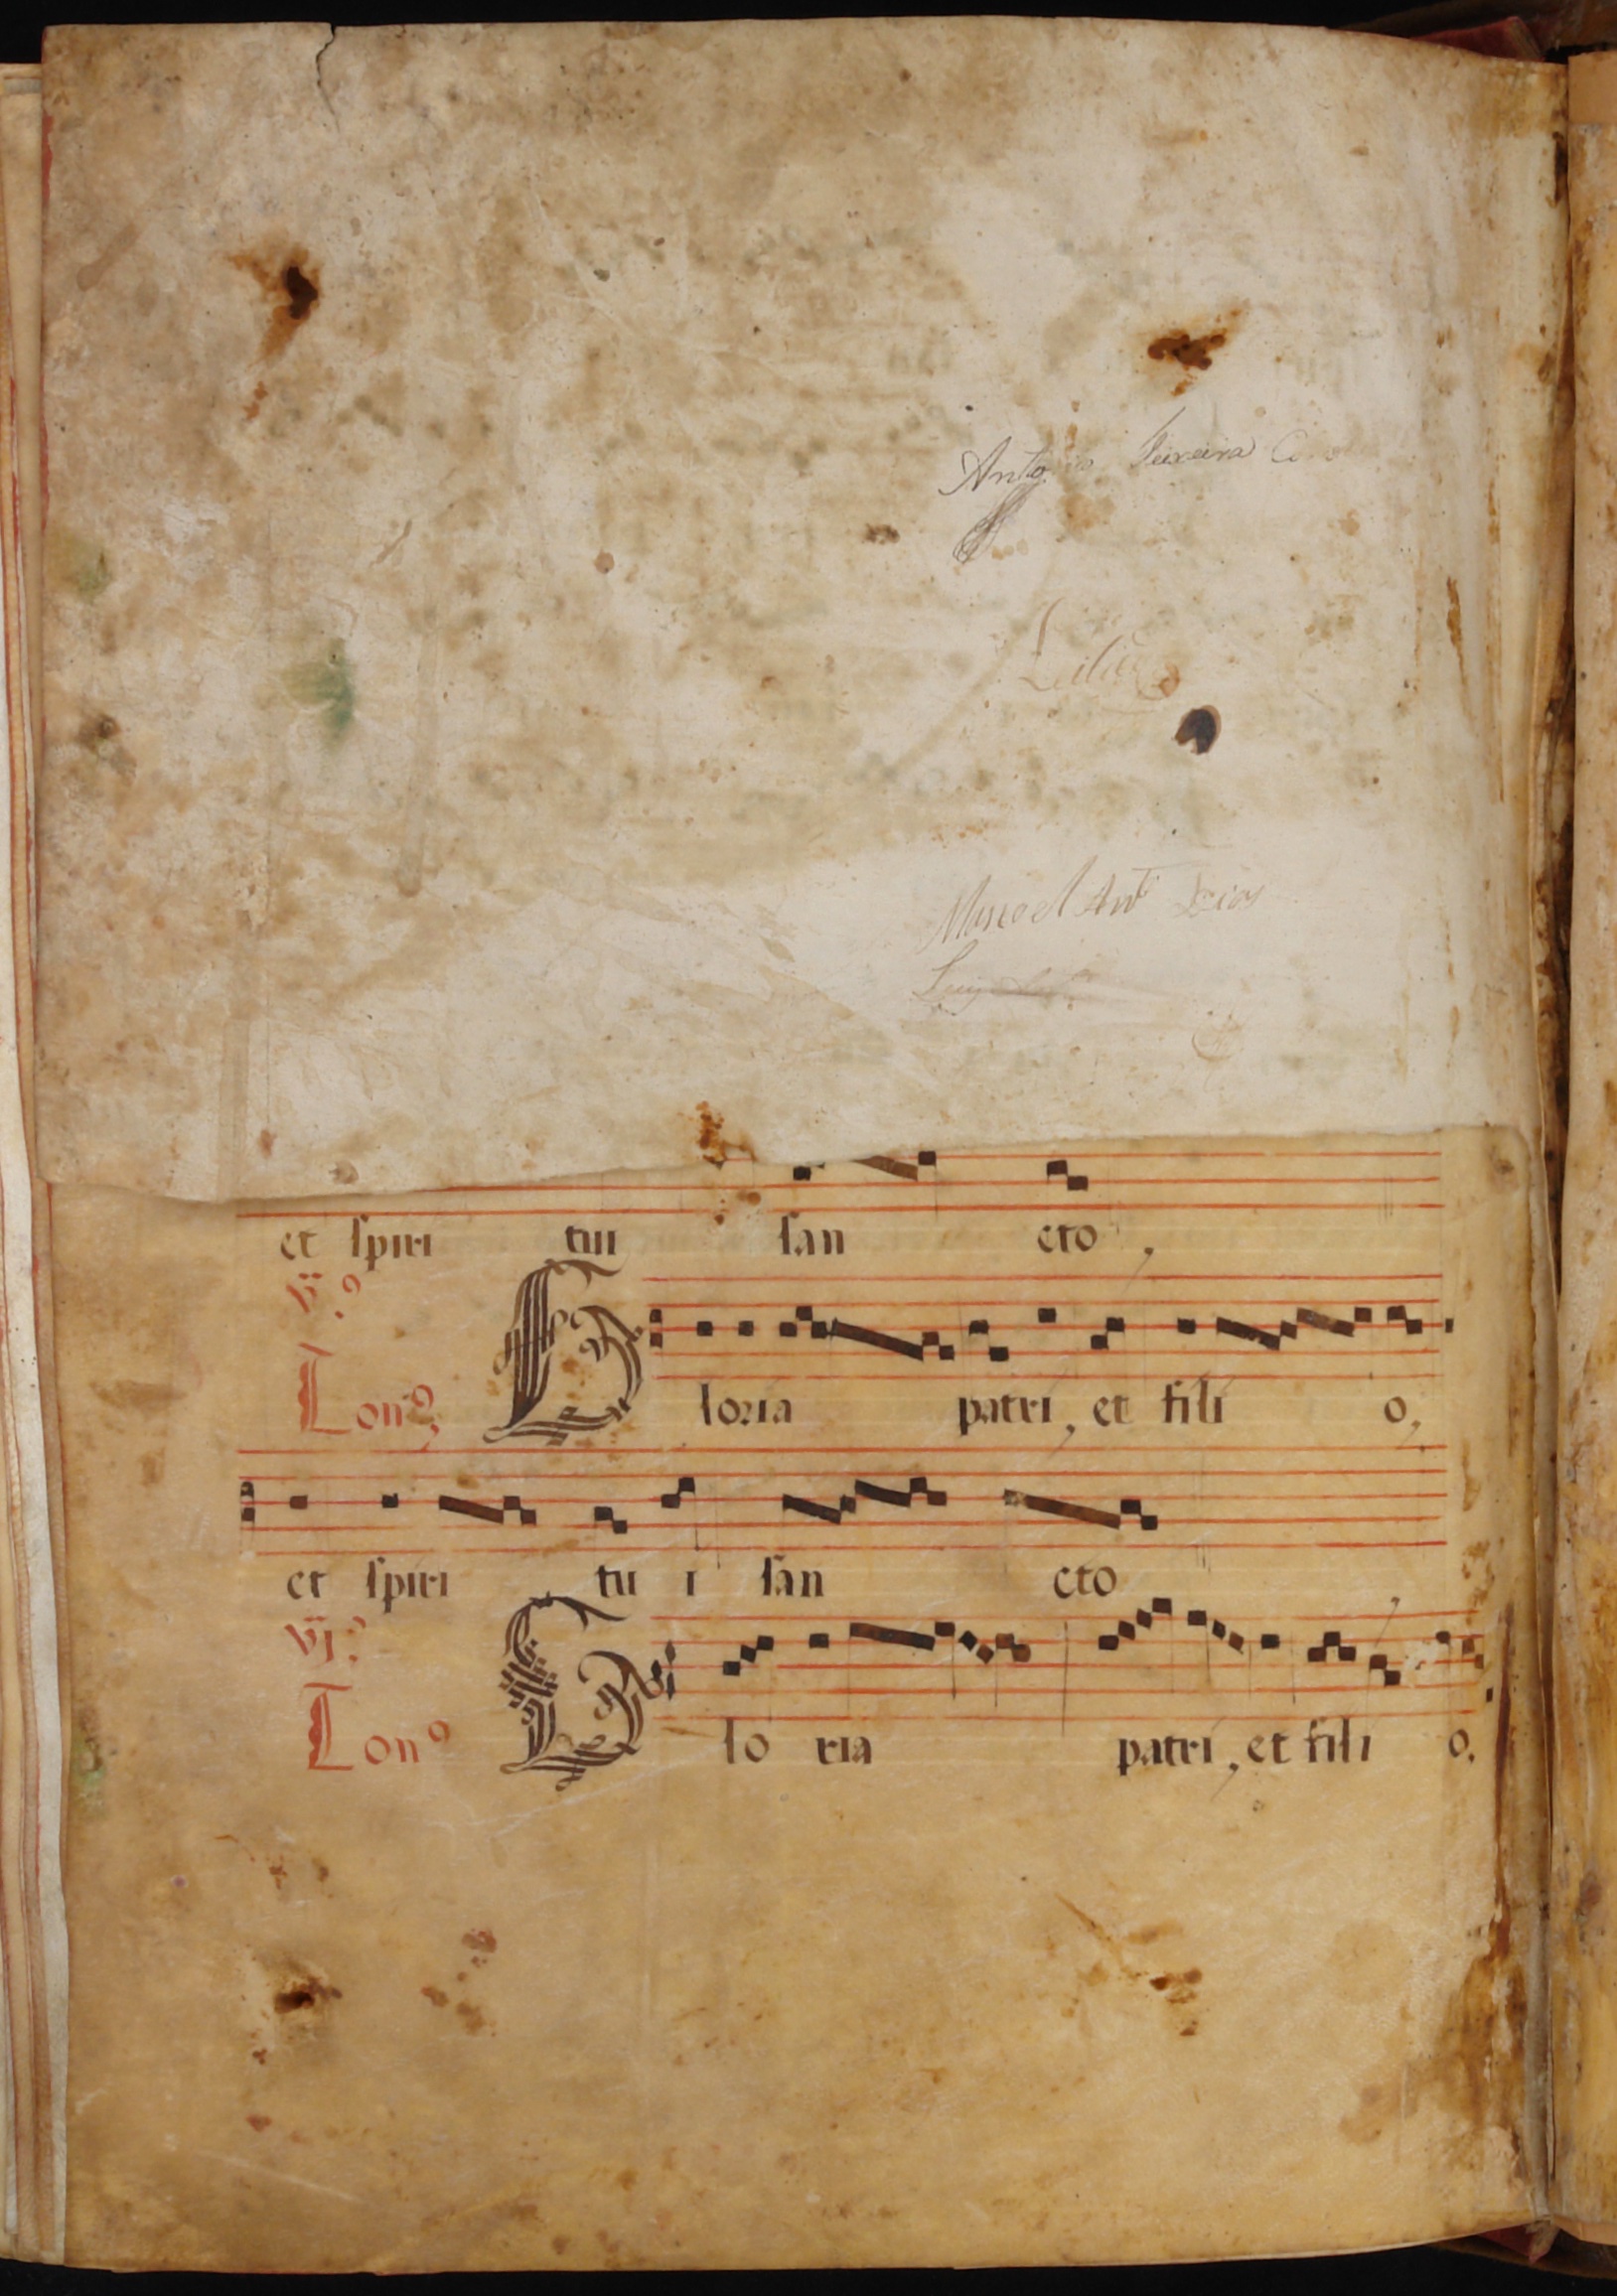 Antonio Teixeira
Manoel Antº Dias
et spiri tui san cto,
vii.º
Tonº, Gloria patri, et fili o,
et spiri tu i san cto
vi.º
Tonº Glo ria patri, et fili o.